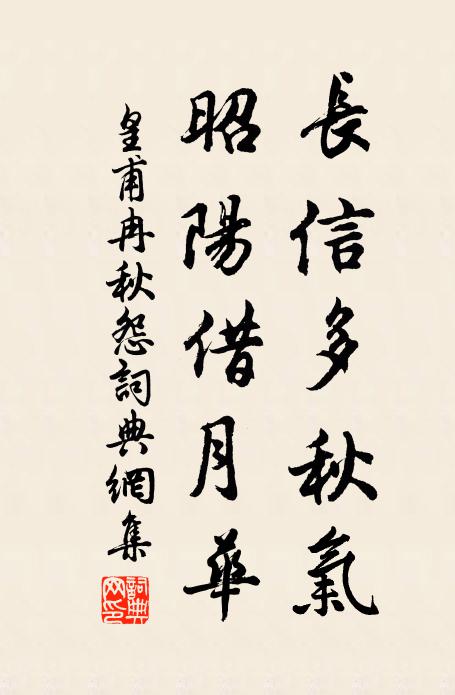 長信多秋氣
昭陽借月華
皇甫冉秋怨詞典網集
詞典
网印